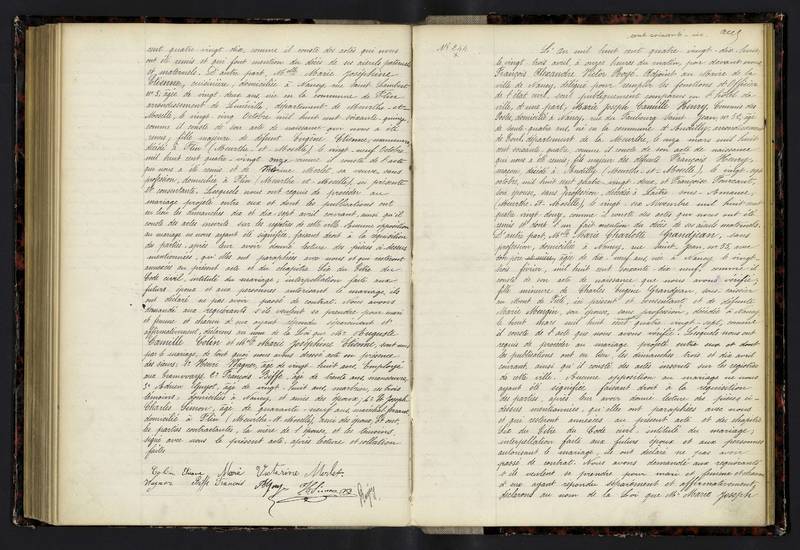 cent quatre-vingt dix, comme il conste des actes qui nous
ont été remis et qui font mention du décès de ses aïeuls paternels
et maternels. D'autre part, Mlle Marie Joséphine
Etienne, cuisinière, domiciliée à Nancy, rue Saint Lambert
No 5, âgée de vingt deux ans, née en la commune de Flin,
arrondissement de Lunéville, département de Meurthe-et-
Moselle, le vingt cinq Octobre mil huit cent soixante quinze,
comme il conste de son acte de naissance qui nous a été
remis, fille majeure de défunt Eugène Etienne, manœuvre,
décédé à Flin (Meurthe et Moselle), le vingt-neuf Octobre
mil huit cent quatre-vingt onze comme il conste de l'acte
qui nous a été remis, et de Victorine Merlet sa veuve sans
profession, domiciliée à Flin (Meurthe et Moselle), ici présente
et consentante. Lesquels nous ont requis de procéder au
mariage projeté entre eux et dont les publications ont
eu lieu les dimanches dix et dix-sept avril courant, ainsi qu'il
conste des actes inscrits sur les registres de cette ville. Aucune opposition
au mariage ne nous ayant été signifiée, faisant droit à la réquisition
des parties, après leur avoir donné lecture des pièces ci-dessus
mentionnées, qui elles ont paraphées avec nous et qui resteront
annexées au présent acte et du chapitre six du titre du
Code civil, intitulé du mariage, interpellation faite aux
futurs époux et aux personnes autorisant le mariage, ils
ont déclaré ne pas avoir passé de contrat. Nous avons
demandé aux requérants s'ils veulent se prendre pour mari
et femme et chacun d'eux ayant répondu séparément et
affirmativement, déclarons au nom de la Loi que Mr Auguste
Camille Colin et Mlle Marie Joséphine Etienne, sont unis
par le mariage, de tout quoi nous avons dressé acte en présence
des sieurs: 1o Henri Wagner, âgé de vingt-huit ans, Employé
aux tramways, 2o François Biffe, âgé de trente ans, manœuvre,
3o Adrien Guyot, âgé de vingt-huit ans, marbrier, ces trois
demeurant, domiciliés à Nancy, et amis des époux, 4o Joseph
Charles Simon, âgé de quarante-neuf ans, marchand forain,
domicilié à Flin (Meurthe-et-Moselle), ami des époux. Et ont,
les parties contractantes, la mère de l'épouse, et les témoins,
signé avec nous le présent acte, après lecture et collation
faite.
Marie Victorine Merlet
Biffe François
cent soixante-six
No 244
L'an mil huit cent quatre-vingt-dix huit,
le vingt trois avril, à onze heures du matin, par devant nous
François Alexandre Victor Boyé, Adjoint au Maire de la
ville de Nancy, délégué pour remplir les fonctions d'Officier
de l'état civil sont publiquement comparus en l'hôtel de
ville, d'une part, Marie Joseph Camille Henry, Commis des
Postes, domicilié à Nancy, rue du Faubourg Saint Jean, No 32, âgé
de trente-quatre ans, né en la commune d'Andilly, arrondissement
de Toul, département de la Meurthe, le onze mars mil huit
cent soixante quatre, comme il conste de son acte de naissance
qui nous a été remis; fils majeur des défunts François Henry,
maçon, décédé à Andilly (Meurthe-et-Moselle), le vingt-six
octobre, mil huit cent quatre-vingt-deux, et Françoise
son épouse, sans profession, décédée à Laître sous-Amance,
(Meurthe-et-Moselle), le vingt-six Novembre mil huit cent
quatre vingt onze, comme il conste des actes qui nous ont été
remis et dont l'un fait mention du décès de ses aïeuls maternels.
D'autre part, Mlle Marie Charlotte Grandjean, sans
profession, domiciliée à Nancy, rue Saint Jean, No 35, avec
son père, âgée de dix-neuf ans, née à Nancy le vingt-
trois février, mil huit cent soixante dix-neuf, comme il
conste de son acte de naissance que nous avons vérifié,
fille mineure de Charles Eugène Grandjean,
au Mont de Piété, ici présent et consentant et de défunte
Marie Mougin, son épouse, sans profession, décédée à Nancy,
le huit mars mil huit cent quatre vingt-sept, comme
il conste de l'acte que nous avons vérifié. Lesquels nous ont
requis de procéder au mariage projeté entre eux et dont
les publications ont eu lieu les dimanches trois et dix avril
courant, ainsi qu'il conste des actes inscrits sur les registres
de cette ville. Aucune opposition au mariage ne nous
ayant été signifiée, faisant droit à la réquisition
des parties, après leur avoir donné lecture des pièces ci-
dessus mentionnées, qu'elles ont paraphées avec nous
et qui resteront annexées au présent acte et du chapitre
six du titre du Code civil, intitulé du mariage,
interpellation faite aux futurs époux et aux personnes
autorisant le mariage, ils ont déclaré ne pas avoir
passé de contrat. Nous avons demandé aux requérants
s'ils veulent se prendre pour mari et femme et chacun
d'eux ayant répondu séparément et affirmativement,
déclarons au nom de la Loi que Mr Marie Joseph